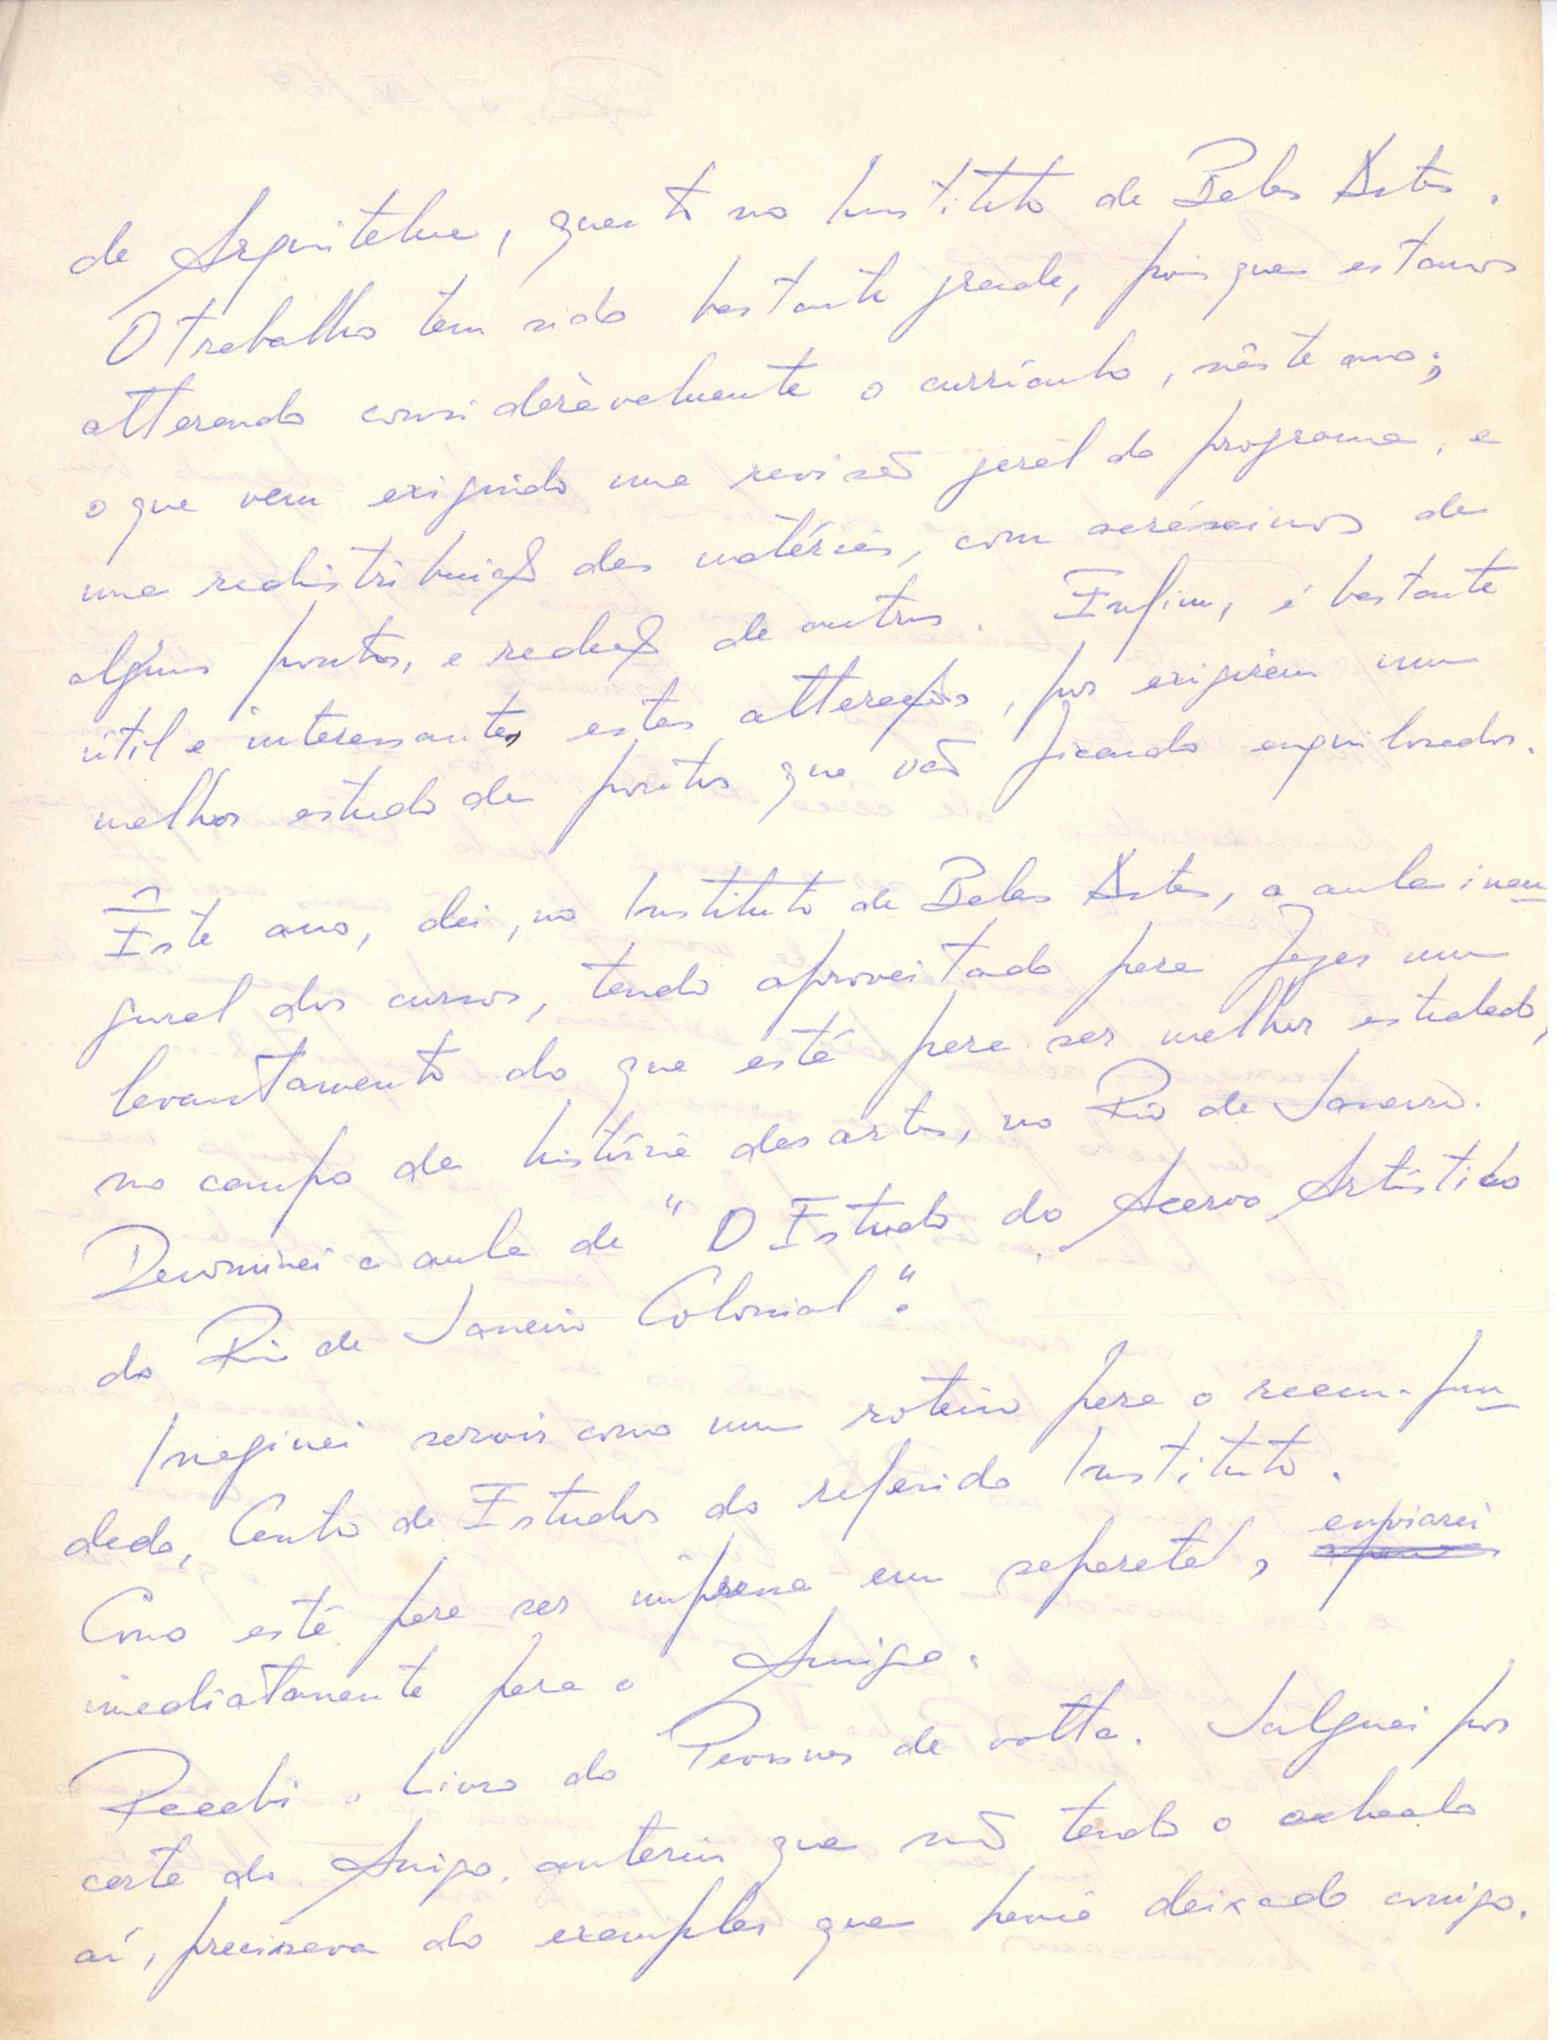 de Arquitetura, quanto no Instituto de Belas Artes.
O trabalho tem sido bastante grande, pois que estamos
alterando consideràvelmente o currículo, nêste ano;
o que vem exigindo uma revisão geral do programa, e
uma redistribuição das matérias, com acréscimos de
alguns pontos, e redução de outros. Enfim, é bastante
útil e interessante, estas alterações, por exigirem um
melhor estudo de pontos que vão ficando enquilosados.
Êste ano, dei, no Instituto de Belas Artes, a aula inau
gural dos cursos, tendo aproveitado para fazer um
levantamento do que está para ser melhor estudado,
no campo da história das artes, no Rio de Janeiro.
Denominei a aula de "O Estudo do Acervo Artístico
do Rio de Janeiro Colonial".
Imaginei servir como um roteiro para o recem-fun
dado, Centro de Estudos do referido Instituto.
Como está para ser impressa em separata, enviarei
imediatamente para o Amigo.
Recebi o livro do de volta. Julguei por
carta do Amigo, anterior que não tendo o achado
aí, precisava do exemplar que havia deixado comigo.